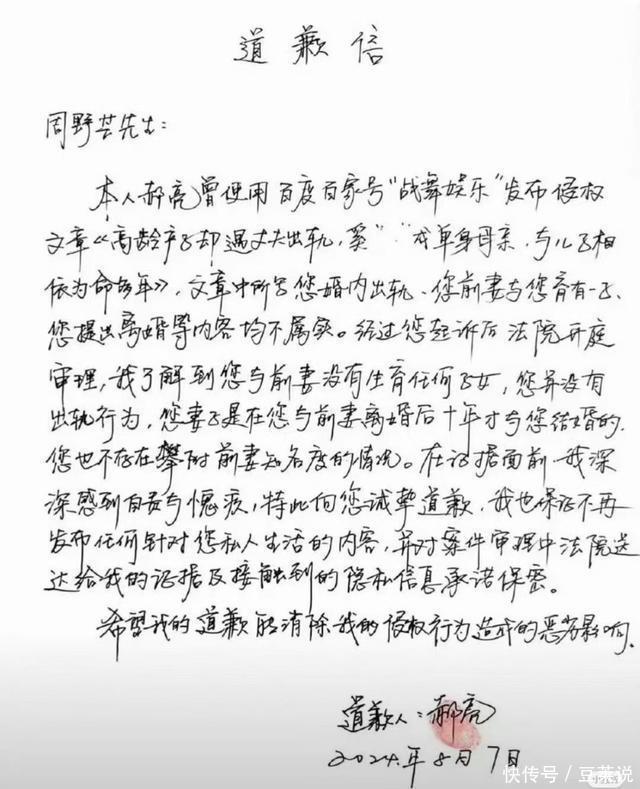 道歉信
周野芒先生:
本人郝亮曾使用百度百家号“战舞娱乐”发布侵权
文章《高龄产子却遇丈夫出轨,奚“ ”戎单身母亲,与儿子相
依为命多年》,文章中所写您婚内出轨、您前妻与您育有一子、
您提出离婚等内容均不属实。经过您起诉后法院开庭
审理,我了解到您与前妻没有生育任何子女,您并没有
出轨行为,您妻子是在您与前妻离婚后十年才与您结婚的,
您也不存在攀附前妻知名度的情况。在证据面前我深
深感到自责与愧疚,特此向您诚挚道歉,我也保证不再
发布任何针对您私人生活的内容,并对案件审理中法院送
达给我的证据及接触到的隐私信息承诺保密。
希望我的道歉能消除我的侵权行为造成的恶劣影响。
道歉人:郝亮
2024年8月7日
快传号/豆菜说